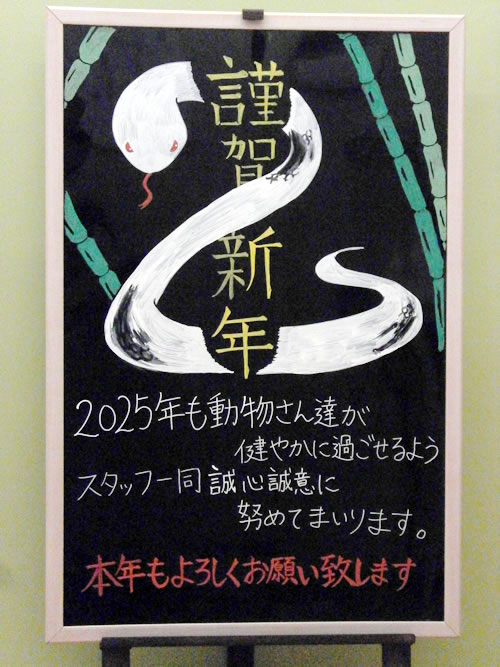 謹賀新年
2025年も動物さん達が
健やかに過ごせるよう
スタッフ一同誠心誠意に
努めてまいります。
本年もよろしくお願い致します